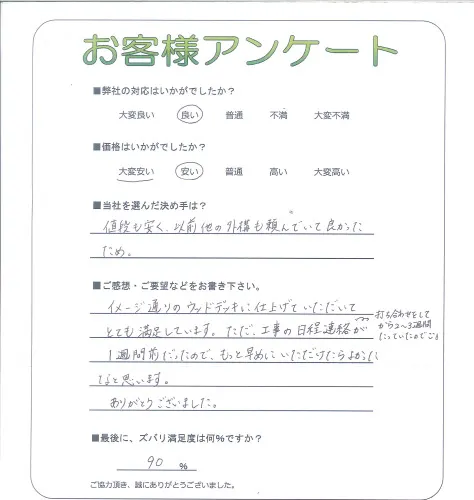 お客様アンケート
■弊社の対応はいかがでしたか？
大変良い 良い 普通 不満 大変不満
■価格はいかがでしたか？
大変安い 安い 普通 高い 大変高い
■当社を選んだ決め手は？
値段も安く、以前他の外構も頼んでいて良かった
ため。
■ご感想・ご要望などをお書き下さい。
イメージ通りのウッドデッキに仕上げていただいて
とても満足しています。ただ、工事の日程連絡が
打ち合わせをして
から2〜3週間
たっていたのでで
1週間前だったので、もっと早めにいただけたらよかった
なと思います。
ありがとうございました。
■最後に、ズバリ満足度は何%ですか？
90 %
ご協力頂き、誠にありがとうございました。